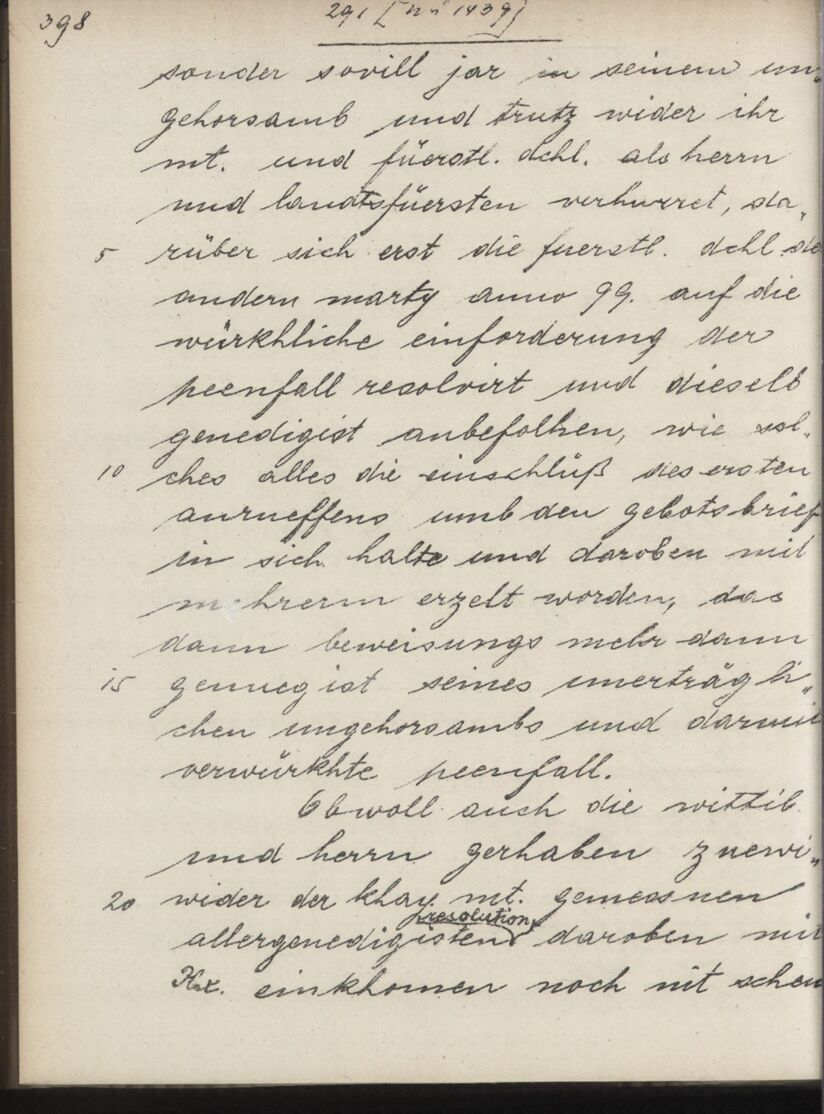 398
291 [Nr 1439]
sonder sovill jar in seinem un„
gehorsamb und trutz wider ihr
mt. und füerstl. dchl. als herrn
und landtsfüersten verharret, da„
5 rüber sich erst die fuerstl. dchl. de
andern marty anno 99. auf die
würkhliche einforderung der
peenfall resolvirt und dieselb
genedigist anbefolhen, wie sol„
10 ches alles die einschlüß des ersten
anrueffens umb den gebotsbrief
in sich halte und daroben mit
mehrerm erzelt worden, das
dann beweisungs mehr dann
15 genueg ist seines unerträgli„
chen ungehorsambs und darmit
verwürkhte peenfall.
Obwoll auch die wittib
und herrn gerhaben zuewi„
20 wider der khay. mt. gemessnen
resolution
allergenedigisten daroben mit
einkhomen noch nit scheu